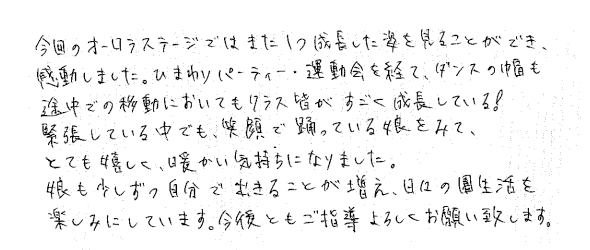 今回のオーロラステージではまた1つ成長した姿を見ることができ、
感動しました。ひまわりパーティー・運動会を経て、ダンスの幅も
途中での移動においてもクラス皆がすごく成長している!
緊張している中でも、笑顔で踊っている娘をみて、
とても嬉しく、暖かい気持ちになりました。
娘も少しずつ自分でできることが増え、日々の園生活を
楽しみにしています。今後ともご指導よろしくお願い致します。